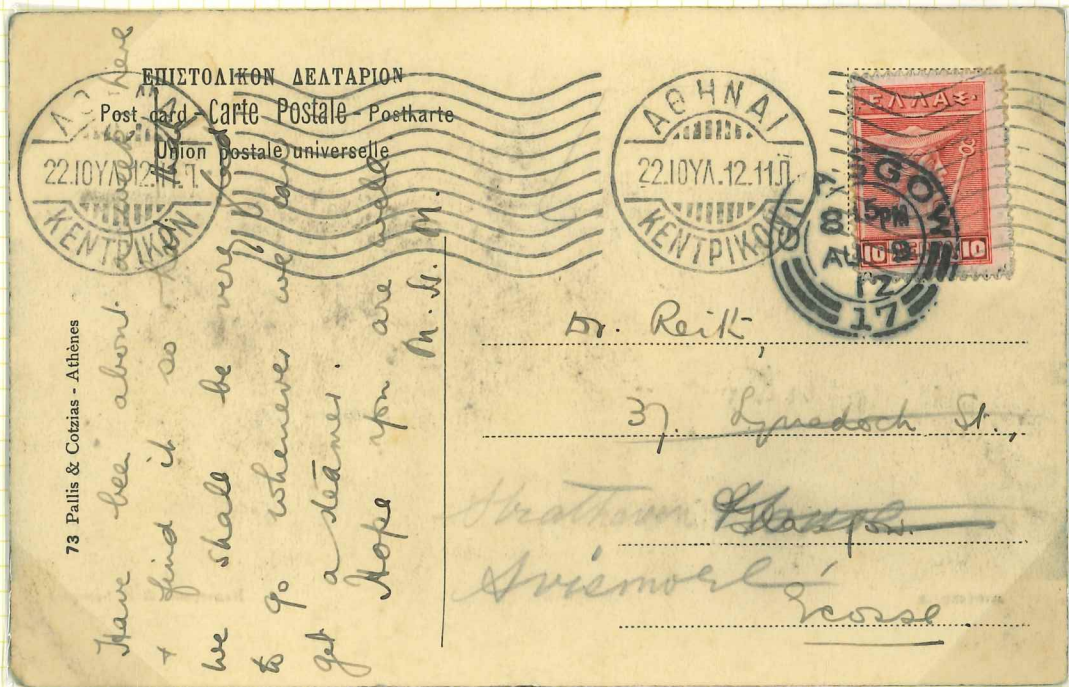 ΕΠΙΣΤΟΛΙΚΟΝ ΔΕΛΤΑΡΙΟΝ
Post-card - Carte Postale - Postkarte
Union postale universelle
ΑΘΗΝΑΙ
22.ΙΟΥΛ.12.11.Π.
ΚΕΝΤΡΙΚΟΝ
ΑΘΗΝΑΙ
22.ΙΟΥΛ.12.11.Π.
ΚΕΝΤΡΙΚΟΝ
ΕΛΛΑΣ
10 10
GLASGOW
8 15PM
AU 9
12
17
73 Pallis & Cotzias - Athènes
Have been about a week here
& find it so hot that
we shall be very glad
to go whenever we can
get a steamer.
Hope you are well
M. N. M.
Dr. Reik,
37. Lynedoch St.,
Strathaven Glasgow.
Aviemore
Ecosse